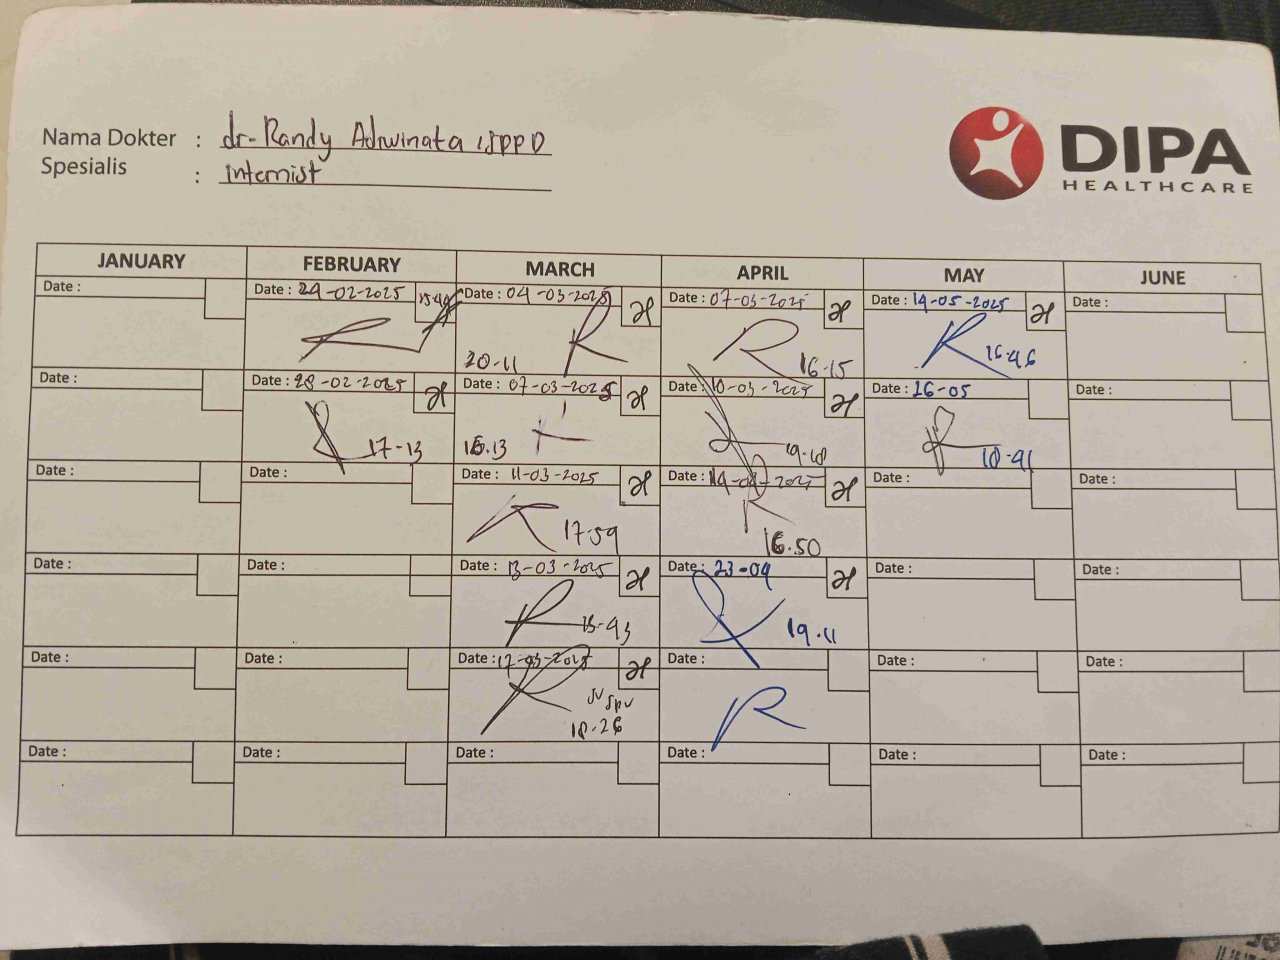 Nama Dokter : dr. Randy Adiwinata, SPPD
Spesialis : internist
DIPA
HEALTHCARE
JANUARY FEBRUARY MARCH APRIL MAY JUNE
Date : Date : 24-02-2025 15-44 Date : 04-03-2025 Date : 07-03-2025 Date : 14-05-2025 Date :
20-11 16-15 16-46
Date : Date : 28-02-2025 Date : 07-03-2025 Date : 10-03-2025 Date : 26-05 Date :
17-13 16.13 19.18 18-41
Date : Date : Date : 11-03-2025 Date : Date : Date :
17-59 16.50
Date : Date : Date : 13-03-2025 Date : 23-04 Date : Date :
15-43 19.11
Date : Date : Date : 17-03-2025 Date : Date : Date :
JV spv
18-26
Date : Date : Date : Date : Date : Date :